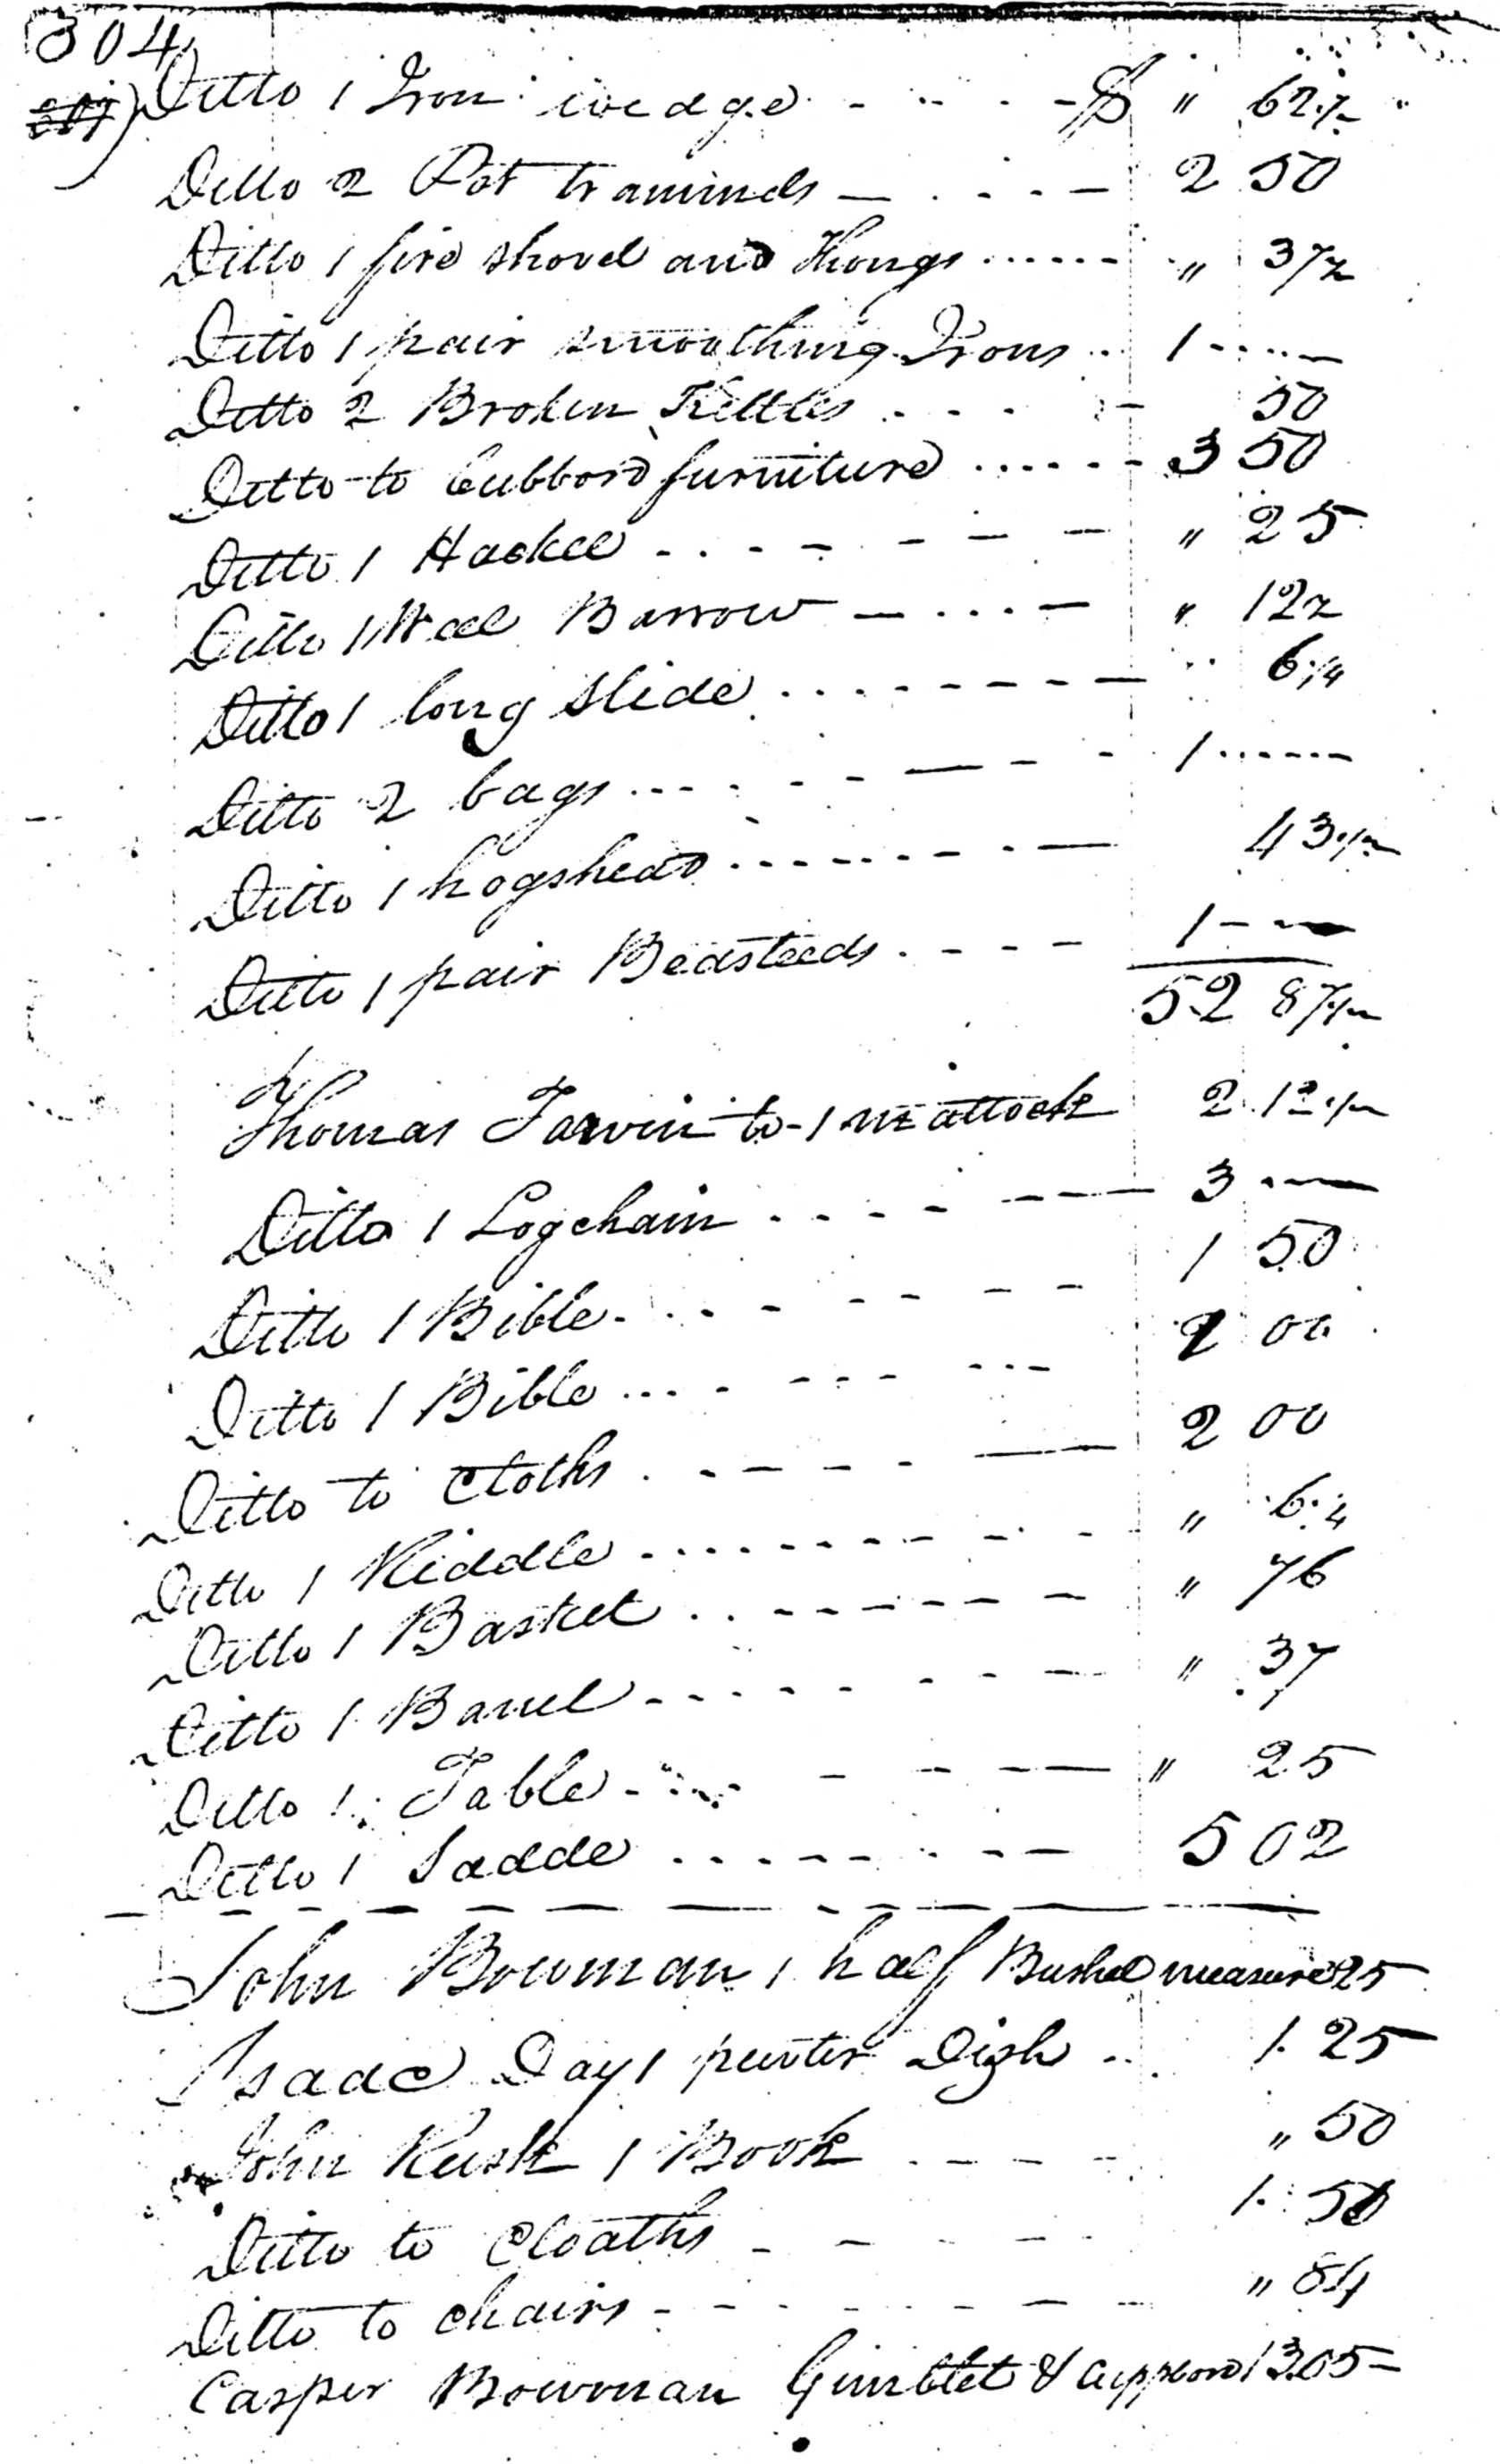 304
Ditto 1 Iron wedge - - - - $ " 62 1/2
Ditto 2 Pot trammels - - - - 2 50
Ditto 1 fire shovel and Thongs ...... " 37 1/2
Ditto 1 pair smoothing Irons .. 1 ......
Ditto 2 Broken Kettles . . . - 50
Ditto to Cubbord furniture ...... 3 50
Ditto 1 Hackel . . - - - - - " 25
Ditto 1 Weel Barrow - - ... - " 12 1/2
Ditto 1 long slide ......... " 6 1/4
Ditto 2 bags ... - - - - - 1 ......
Ditto 1 hogshead ......... 43 1/2
Ditto 1 pair Bedsteeds . - - - 1 - -
52 87 1/2
Thomas Tarvin to 1 mattock 2 12 1/2
Ditto 1 Logchain . . . - - - 3 - -
Ditto 1 Bible . . . - - - - 1 50
Ditto 1 Bible ... - - - - ... 2 00
Ditto to Cloths . - - - - - 2 00
Ditto 1 Riddle ......... " 6 1/4
Ditto 1 Basket . . - - - - - " 76
Ditto 1 Barrel - - - - - - - " 37
Ditto 1 Table - ... - - - " 25
Ditto 1 Sadde . . . - - - - 5 02
John Bowman 1 half Bushel measure 25
Isaac Day 1 peuter Dish .. 1 25
John Rusk 1 Book - - - - " 50
Ditto to Cloaths - - - - 1 50
Ditto to chairs - - - - - - " 84
Casper Bowman Gimblet & 1 3.05 -